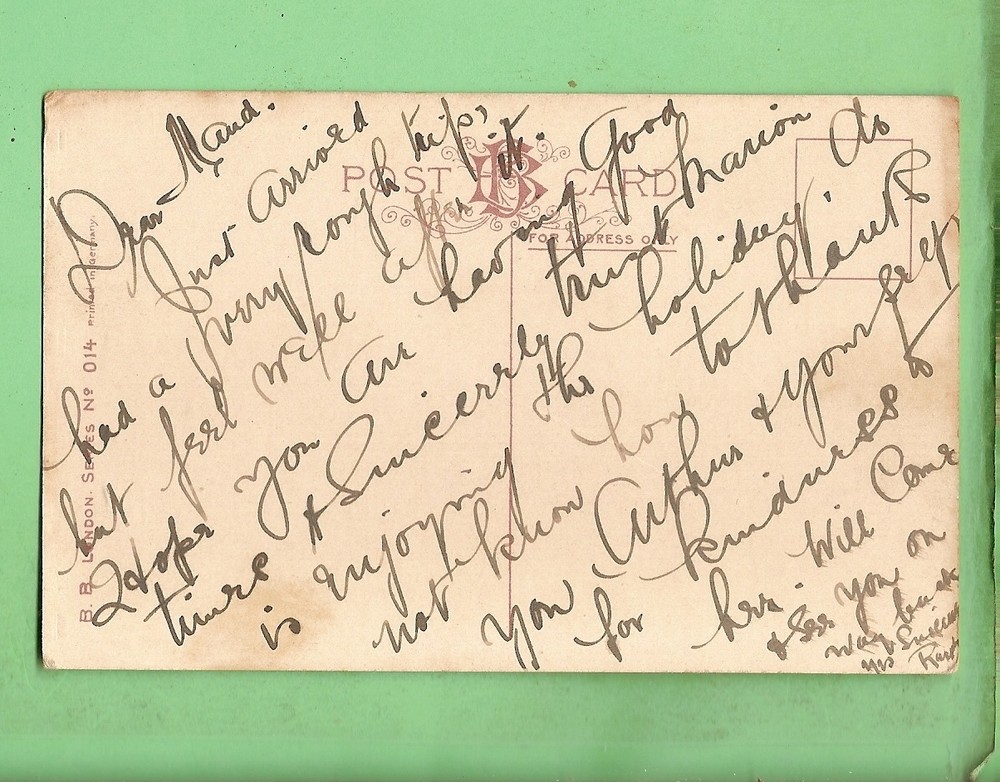 POST CARD
FOR ADDRESS ONLY
B.B. LONDON. SERIES Nº 014 Printed in Germany.
Dear Maud.
Just arrived
had a very rough trip,
but feel well after it.
Hope you are having good
times & Sincerely trust Marion
is enjoying the holiday. Do
not know how to thank
you Arthur & yourself
for kindness to
her. Will Come
& See you on
way back
yrs